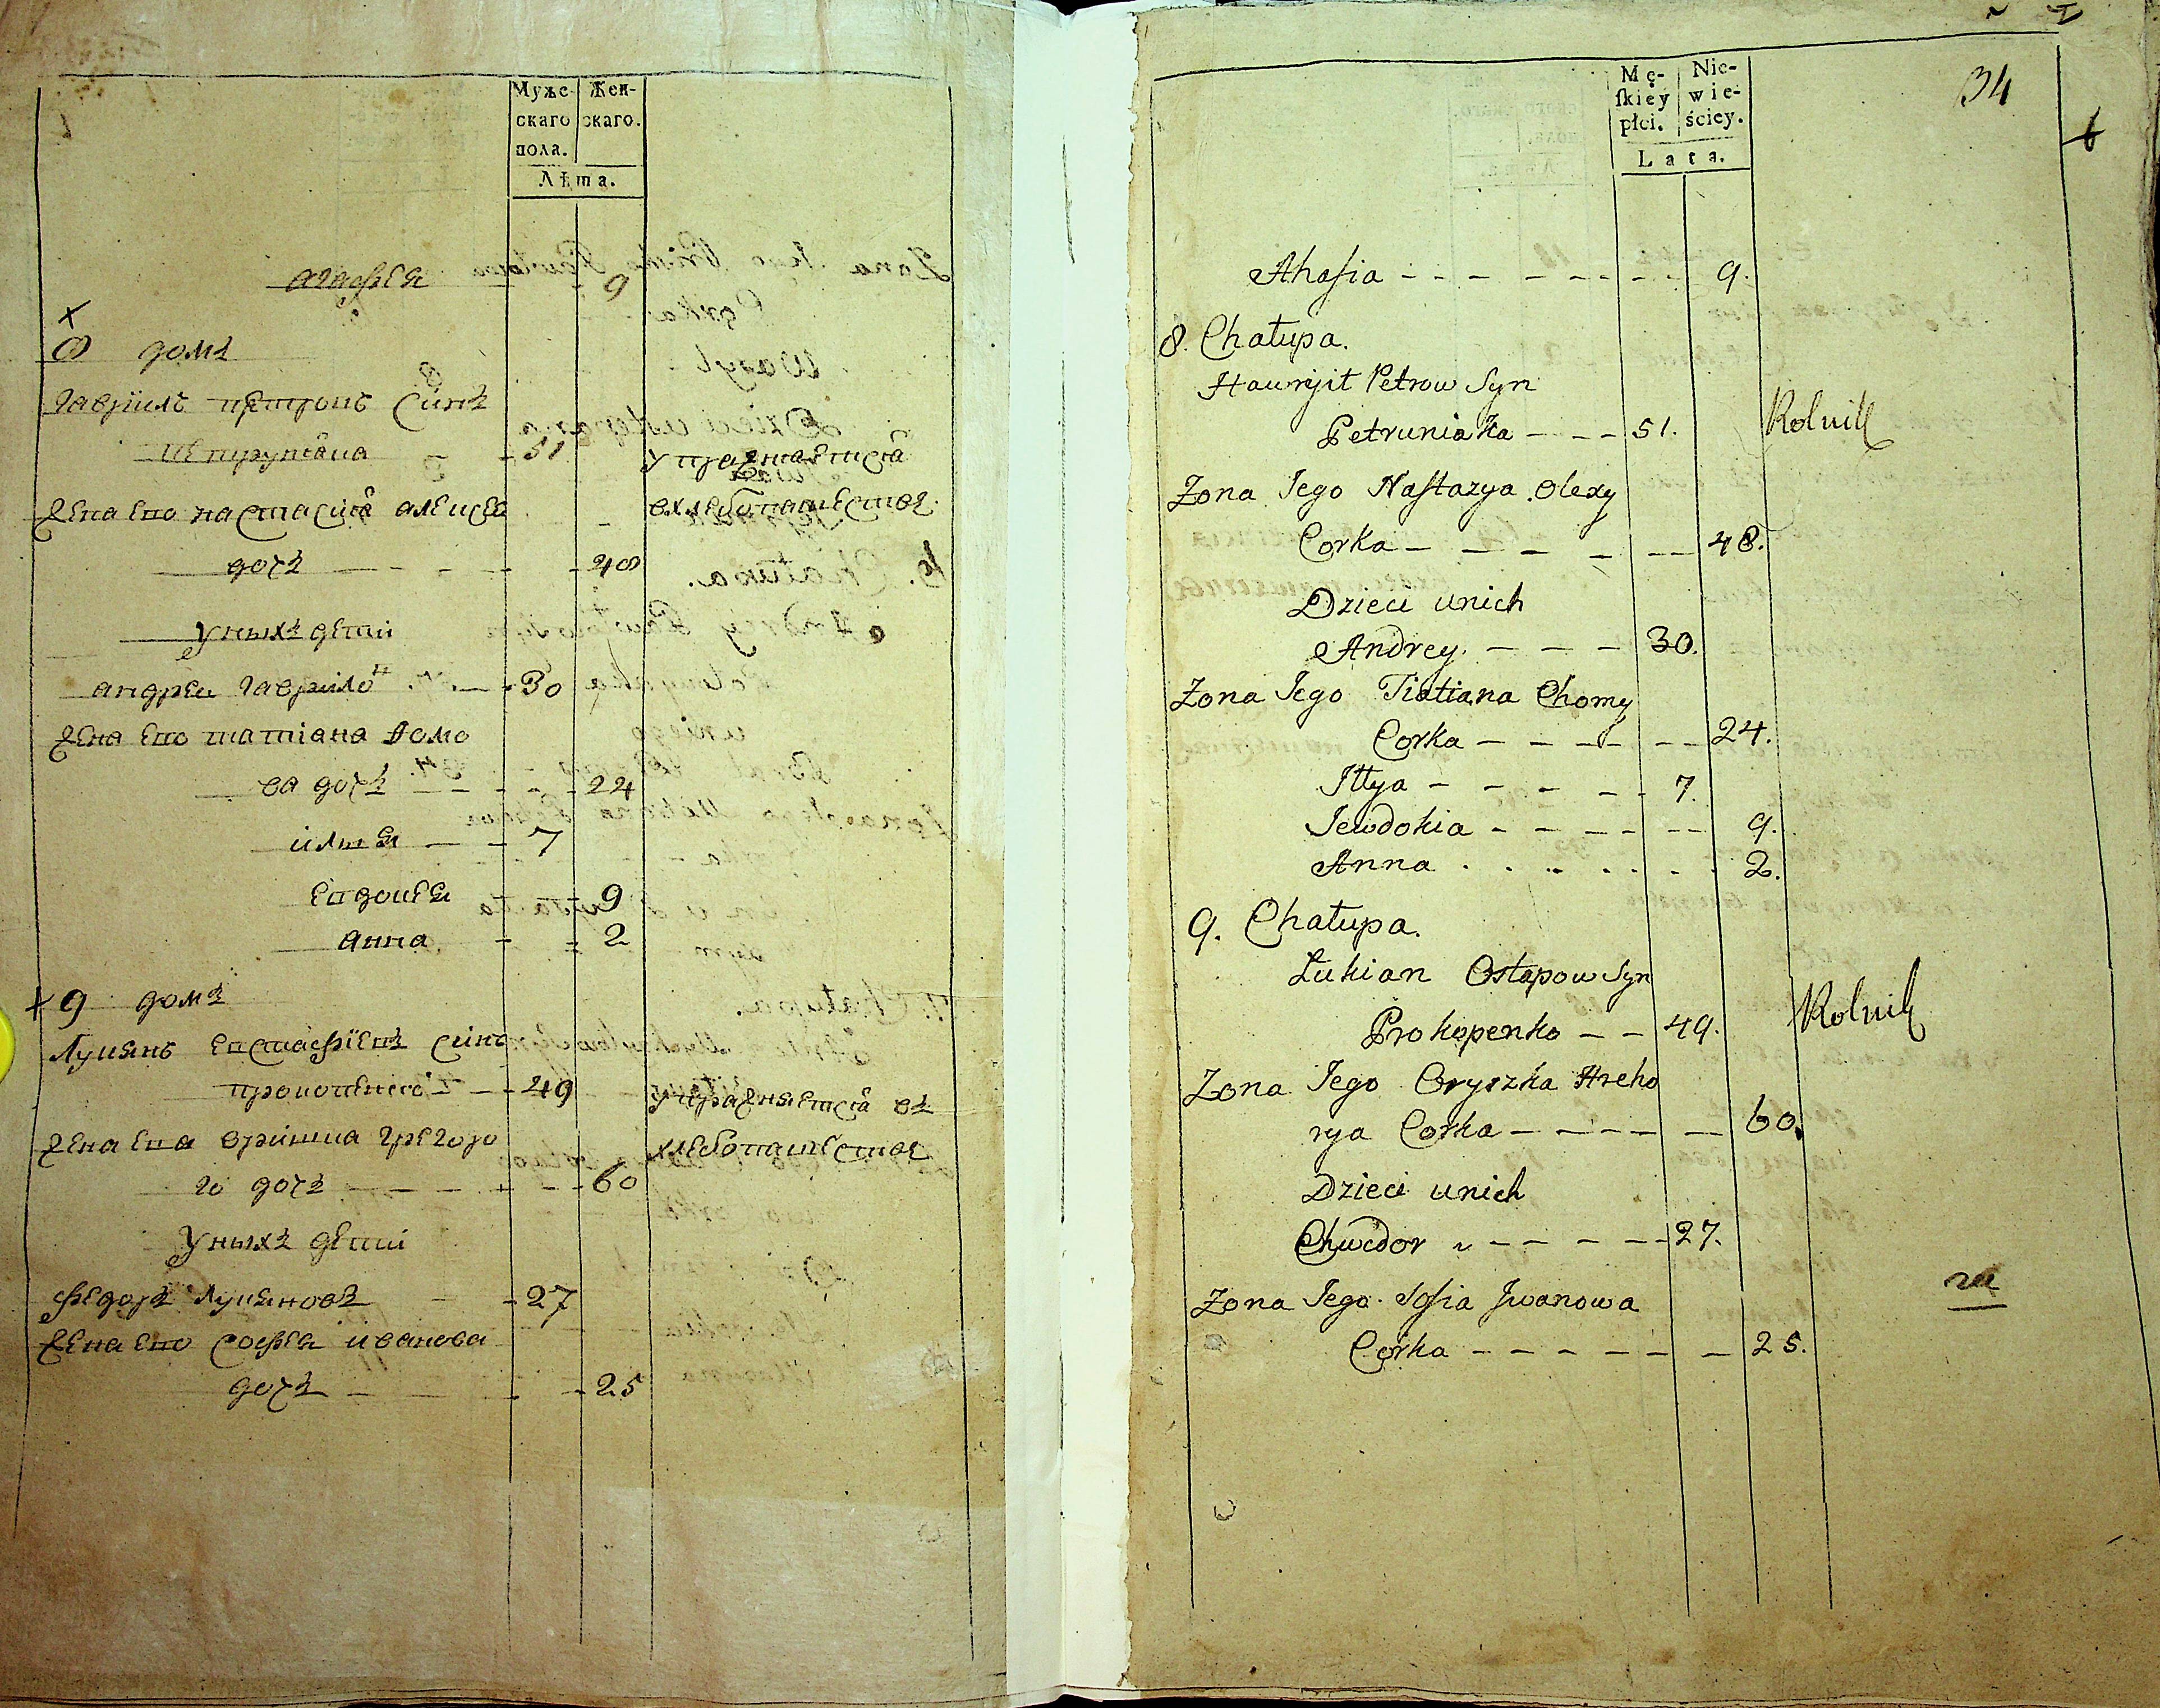 Муже-
скаго
пола.
Жен-
скаго.
Лѣта.
агафея 9
8 домъ
гаврiилъ петровъ синъ
петруняка 51
упражняется
жена его настасия алексея
вхлебопашестве
дочь 48
уныхъ дети
андреи гаврилов 30
жена его татiана хомо
ва дочь 24
илья 7
евдокея 9
анна 2
9 домъ
Лукянъ евстафiевъ синъ
прокопенко 49
упражняется въ
жена его оришка грегоро
хлебопашестве
го дочь 60
уныхъ дети
федоръ Лукяновъ 27
жена его софея иванова
дочь 25
34
Mę-
ſkiey
płci.
Nie-
wie-
ściey.
Lata.
Ahafia 9.
8. Chałupa.
Hawryił Petrow Syn
Petruniaka 51. Rolnik
Zona Iego Nastazya Olexy
Corka 48.
Dzieci unich
Andrey 30.
Zona Iego Tiatiana Chomy
Corka 24.
Iłłya 7.
Iewdokia 9.
Anna 2.
9. Chałupa.
Łukian Ostapow Syn
Prokopenko 49. Rolnik
Zona Iego Oryszka Hreho
rya Corka 60.
Dzieci unich
Chwedor 27.
Zona Iego Sofia Iwanowa
Corka 25.